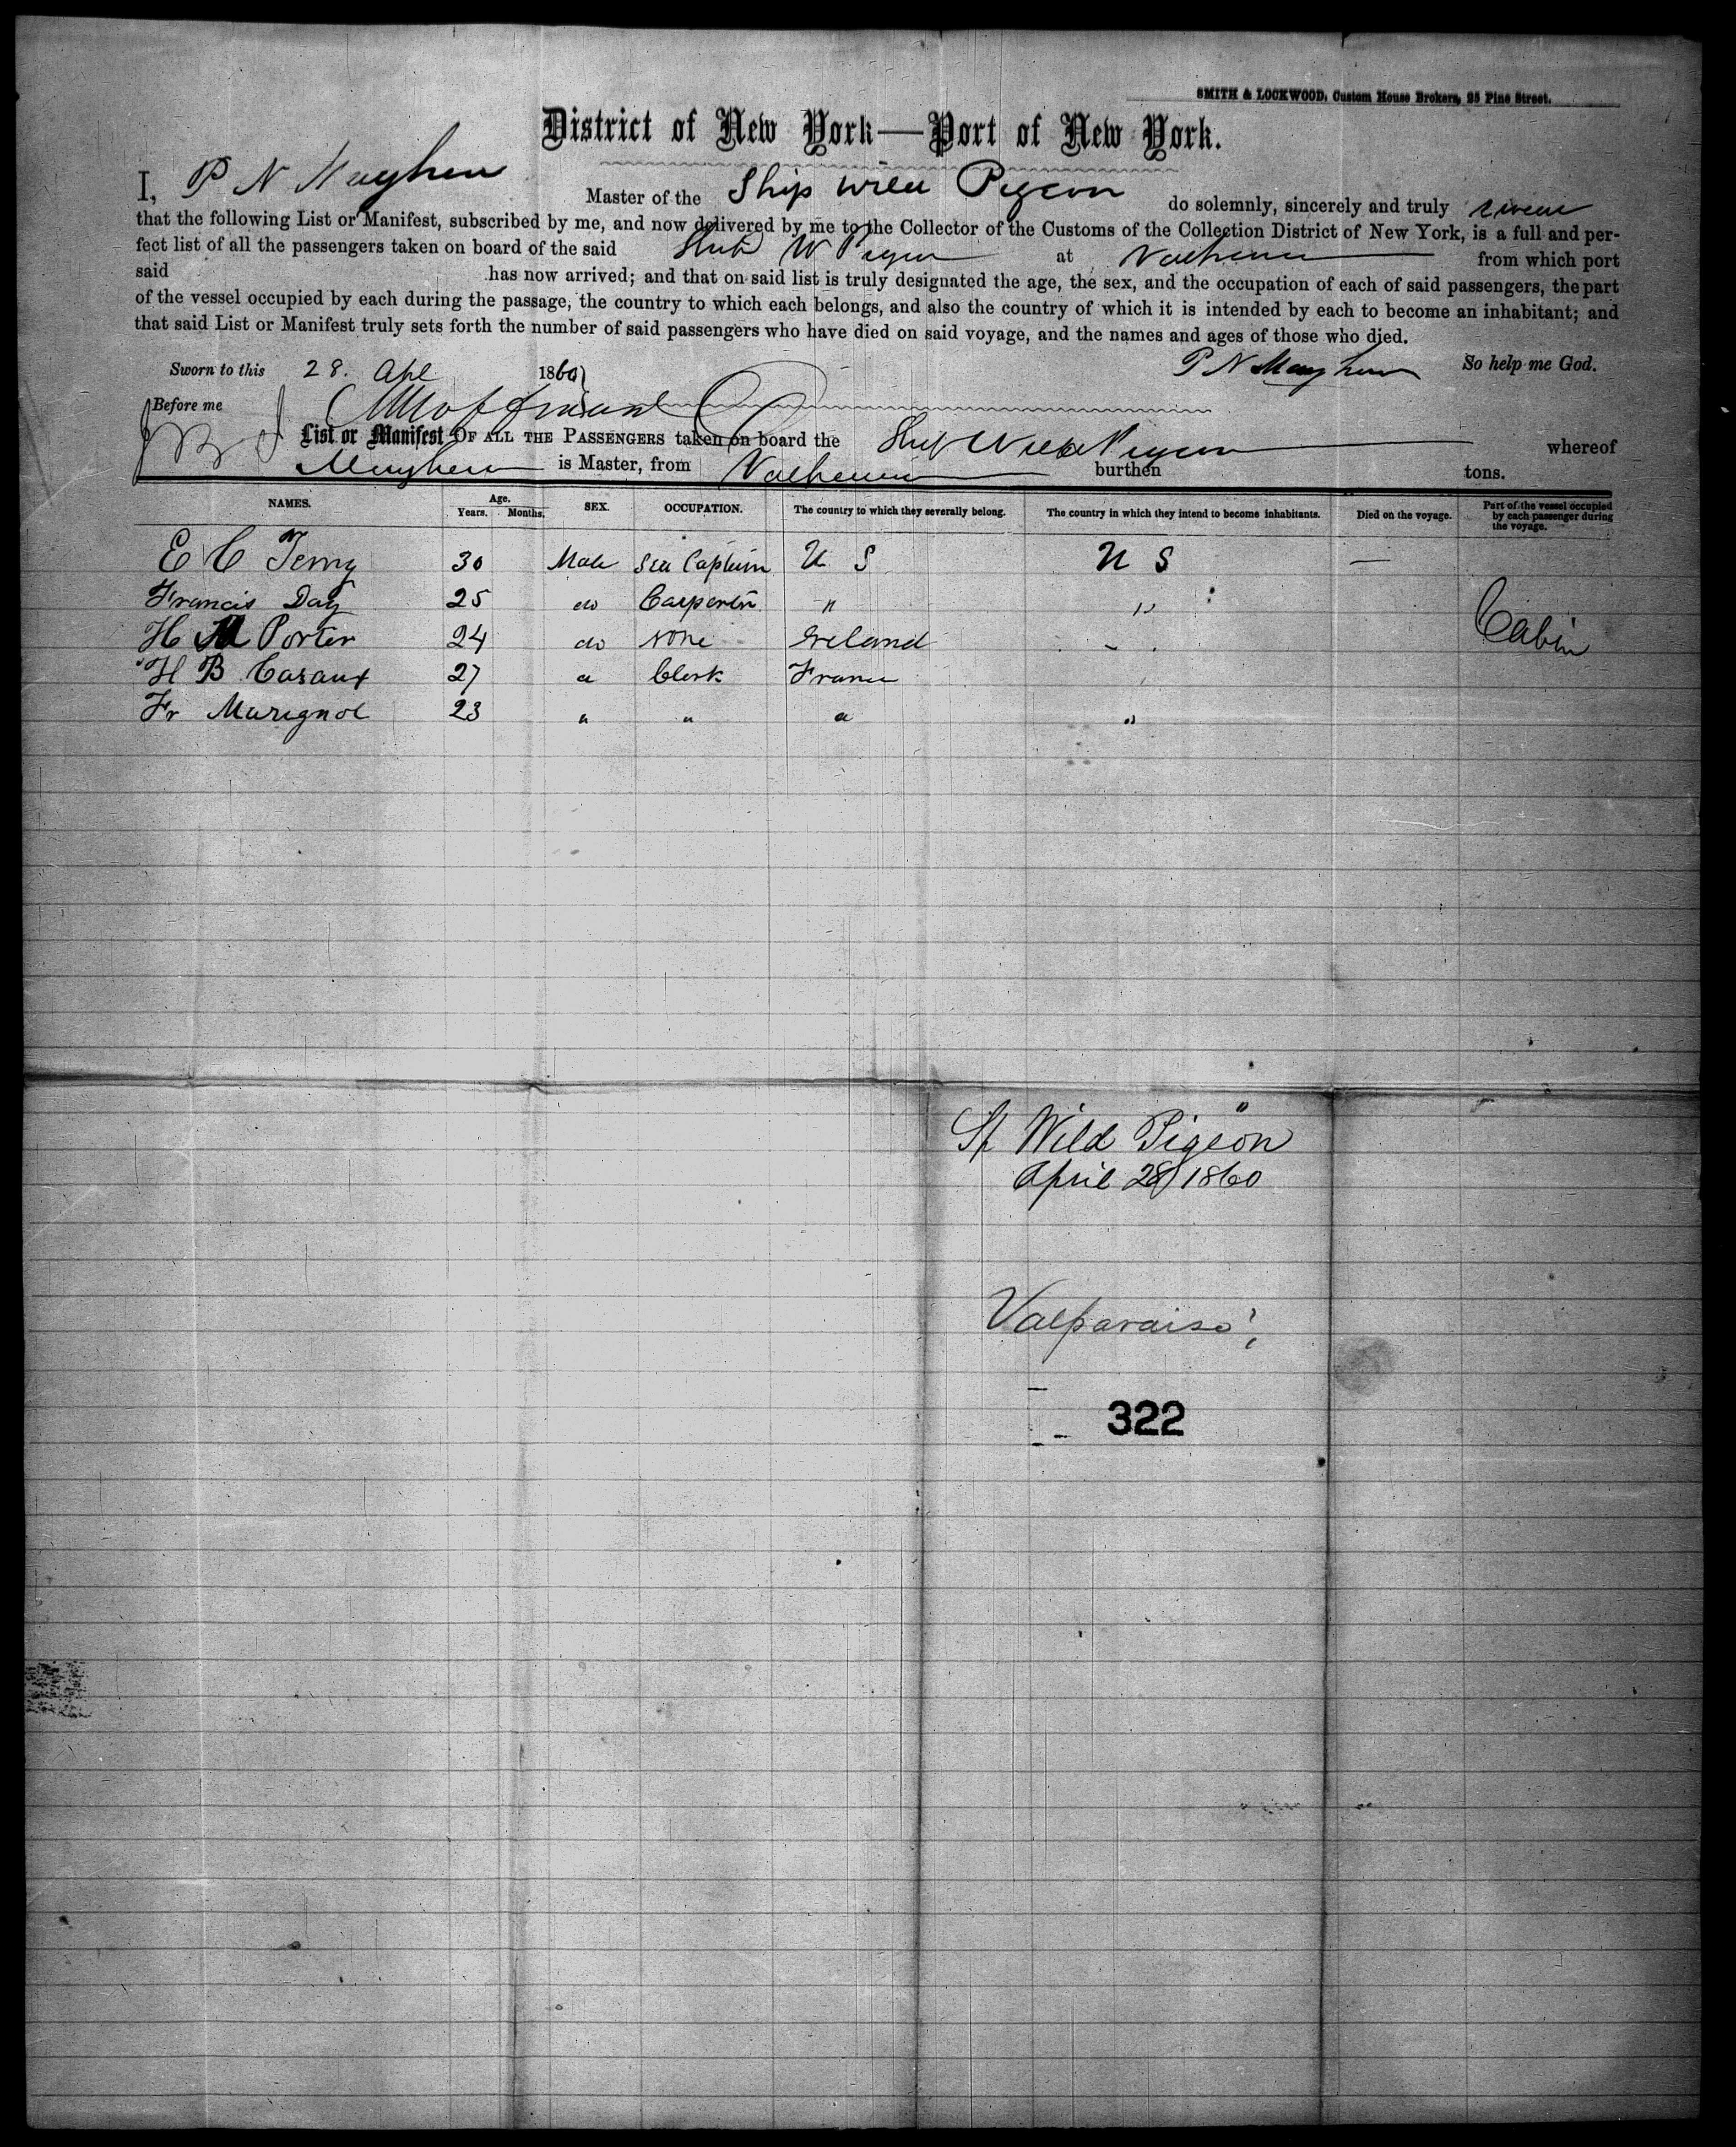 SMITH & LOCKWOOD, Custom House Brokers, 25 Pine Street.
District of New York—Port of New York.
I, P N Mayhew Master of the Ship Wild Pigeon do solemnly, sincerely and truly swear
that the following List or Manifest, subscribed by me, and now delivered by me to the Collector of the Customs of the Collection District of New York, is a full and per-
fect list of all the passengers taken on board of the said Ship W Pigeon at from which port
said has now arrived; and that on said list is truly designated the age, the sex, and the occupation of each of said passengers, the part
of the vessel occupied by each during the passage, the country to which each belongs, and also the country of which it is intended by each to become an inhabitant; and
that said List or Manifest truly sets forth the number of said passengers who have died on said voyage, and the names and ages of those who died.
Sworn to this 28. Apl 1860 P N Mayhew So help me God.
Before me
List or Manifest OF ALL THE PASSENGERS taken on board the Ship Wild Pigeon whereof
Mayhew is Master, from burthen tons.
NAMES. Age. Years. Months. SEX. OCCUPATION. The country to which they severally belong. The country in which they intend to become inhabitants. Died on the voyage. Part of the vessel occupied by each passenger during the voyage.
E C Terry 30 Male Sea Captain U S U S —
Francis Day 25 do Carpenter " "
H M Porter 24 do None Ireland " Cabin
H B Casaux 27 " Clerk France
Fr Marignol 23 " " " "
Sp Wild Pigeon
April 28/1860
Valparaiso
322